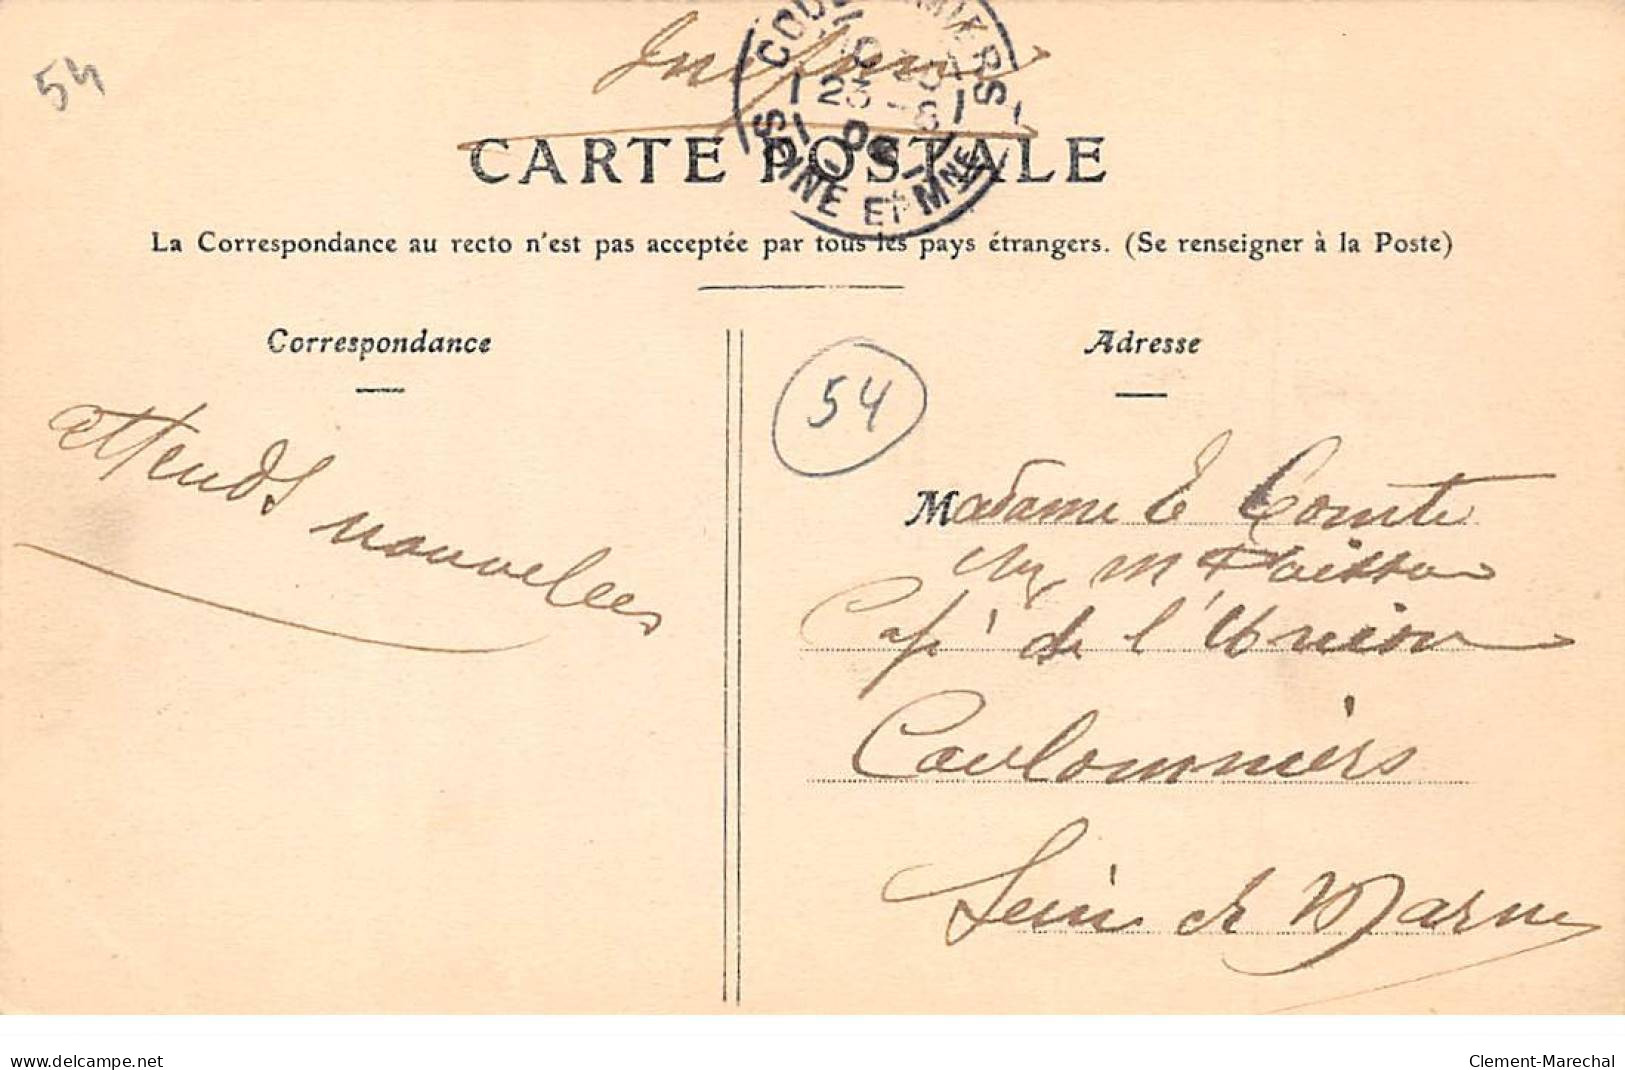 54
CARTE POSTALE
SEINE ET MNE
23 -8
La Correspondance au recto n'est pas acceptée par tous les pays étrangers. (Se renseigner à la Poste)
Correspondance
Adresse
54
attends
nouvelles
Madame E Comte
chez m
Café de l'Union
Coulommiers
Seine et Marne
www.delcampe.net
Clement-Marechal